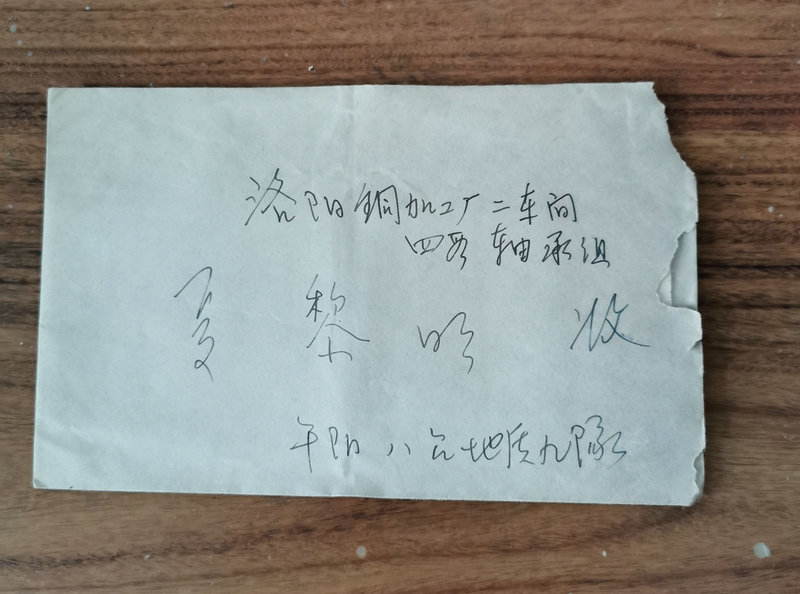 洛阳銅加工厂二车间
四段轴承组
夏黎明 收
午阳八台地质九隊